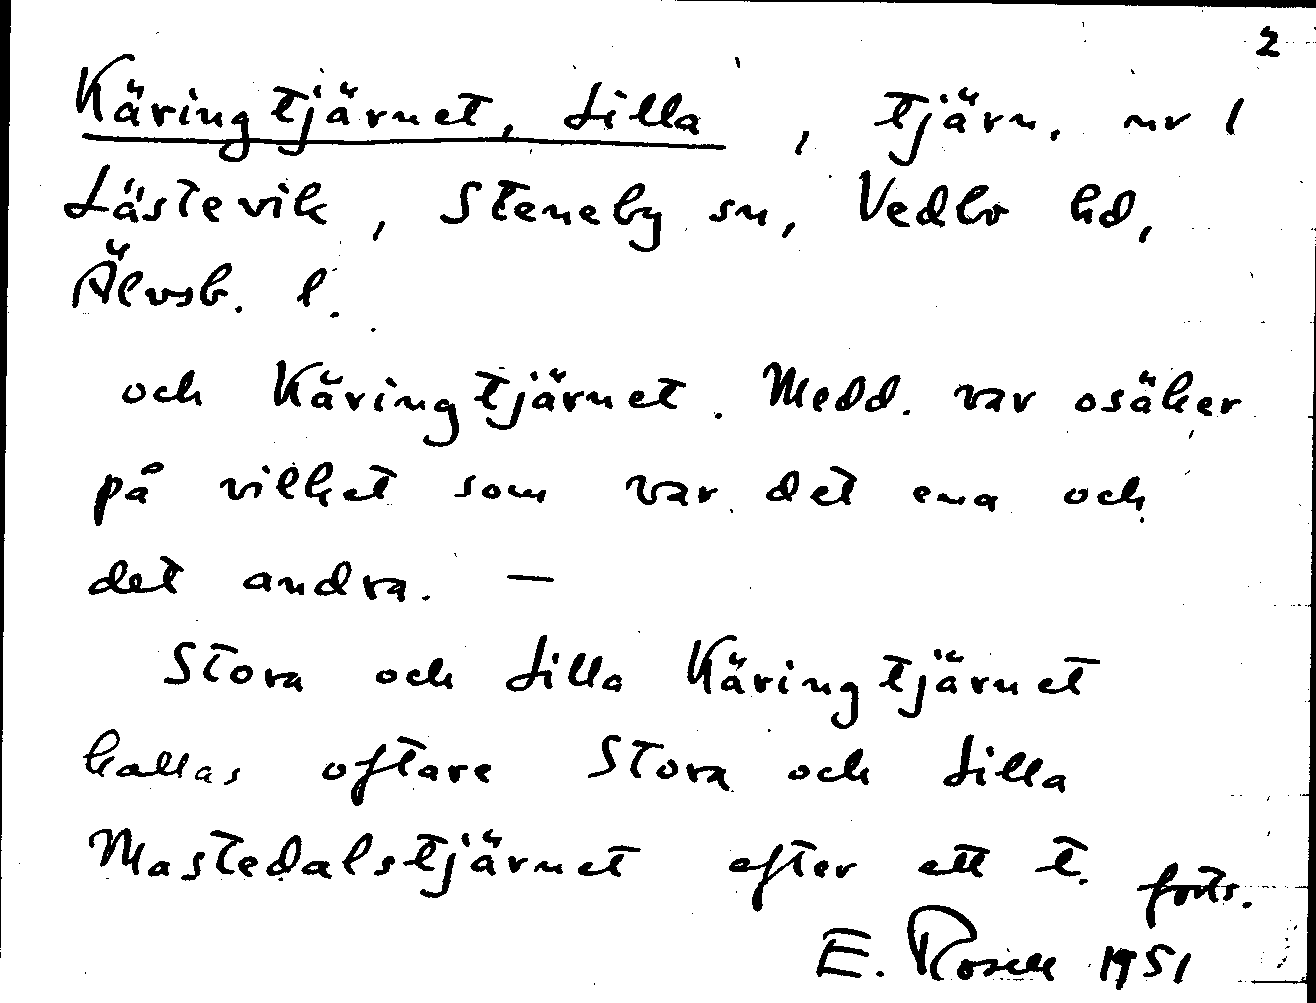 2
Käringtjärnet, Lilla, tjärn, nr 1
Lästevik, Steneby sn, Vedbo hd,
Älvsb. l.
och Käringtjärnet. Medd. var osäker
på vilket som var det ena och
det andra. —
Stora och Lilla Käringtjärnet
kallas oftare Stora och Lilla
Mastedalstjärnet efter ett t. forts.
E. Rosell 1951